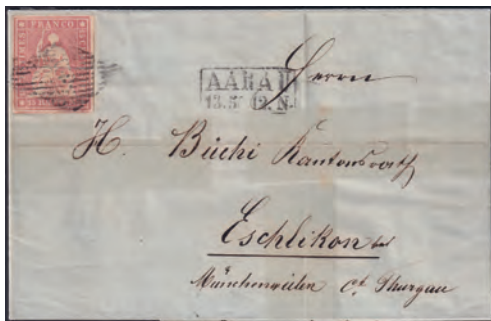 FRANCO
AARAU
Herrn
H. Büchi Kantonsrath
Eschlikon bei
Münchenwilen Ct. Thurgau